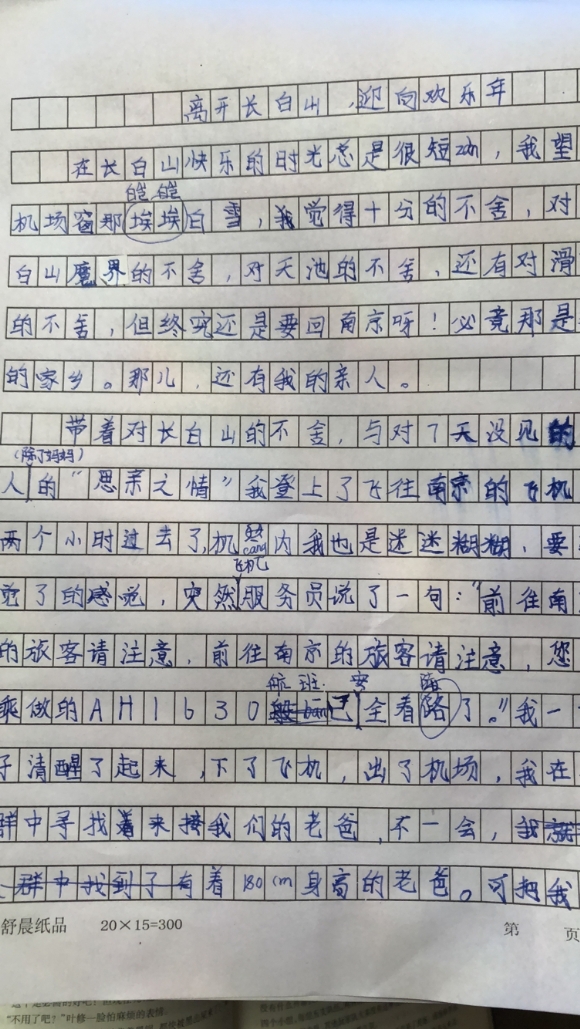 离开长白山，迎向欢乐年
在长白山快乐的时光总是很短zan，我望
皑皑
机场窗那埃埃白雪，我觉得十分的不舍，对
白山魔界的不舍，对天池的不舍，还有对滑
的不舍，但终究还是要回南京呀！必竟那是
的家乡。那儿，还有我的亲人。
带着对长白山的不舍，与对7天没见的
（除了妈妈）
人的“思亲之情”我登上了飞往南京的飞机
两个小时过去了，机cang内我也是迷迷糊糊，要
飞机
觉了的感觉，突然服务员说了一句：“前往南
的旅客请注意，前往南京的旅客请注意，您
航班： 安 陆
乘做的AH1630已全着路了。”我一
子清醒了起来，下了飞机，出了机场，我在
群中寻找着来接我们的老爸，不一会，我就
群中找到了有着180cm身高的老爸。可把我
舒晨纸品 20×15=300 第 页
“不用了吧？”叶修一脸怕麻烦的表情。